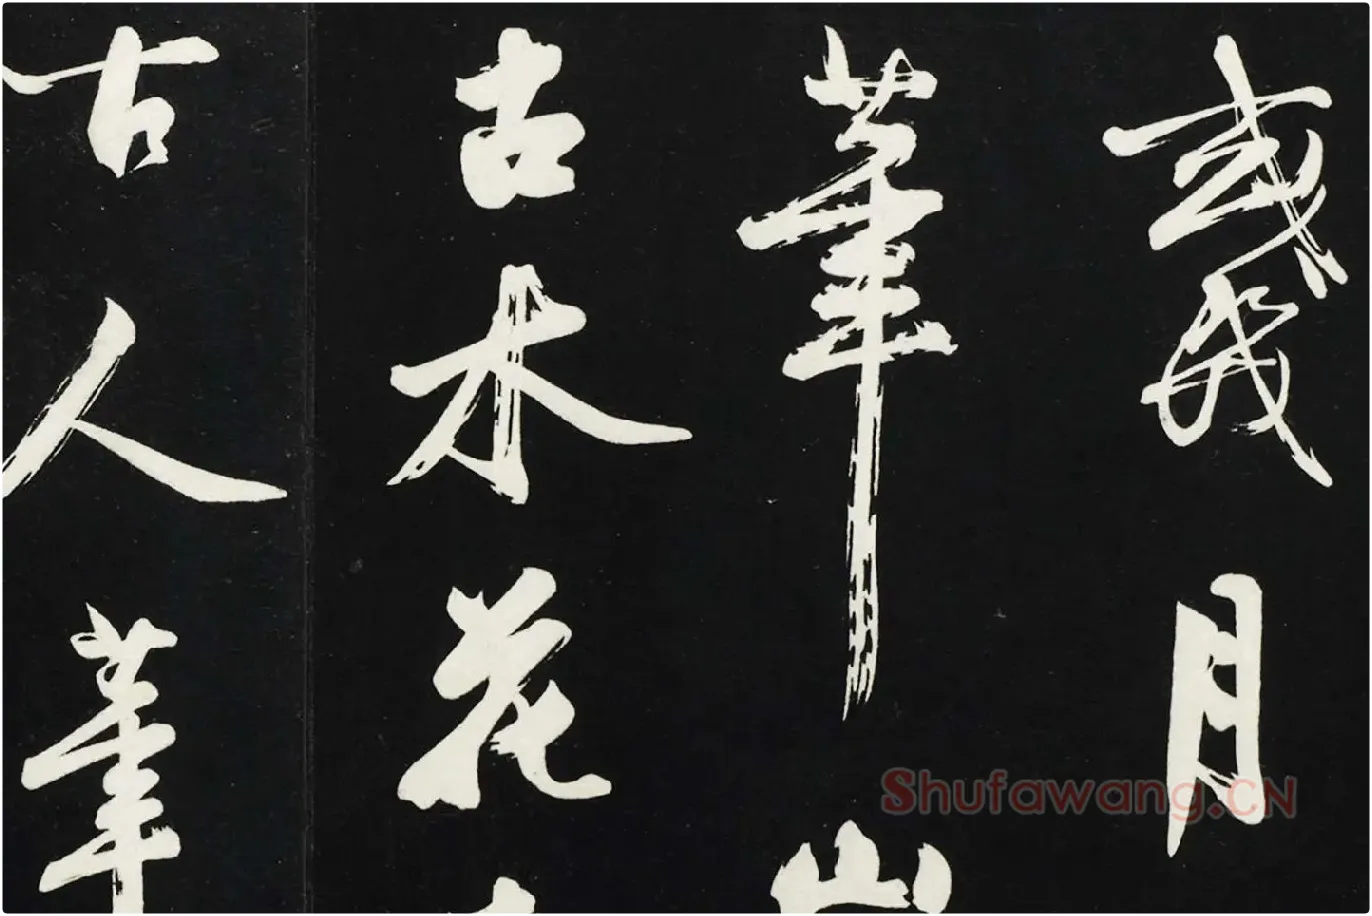 歲月
華山
古木花
古人華
Shufawang.CN